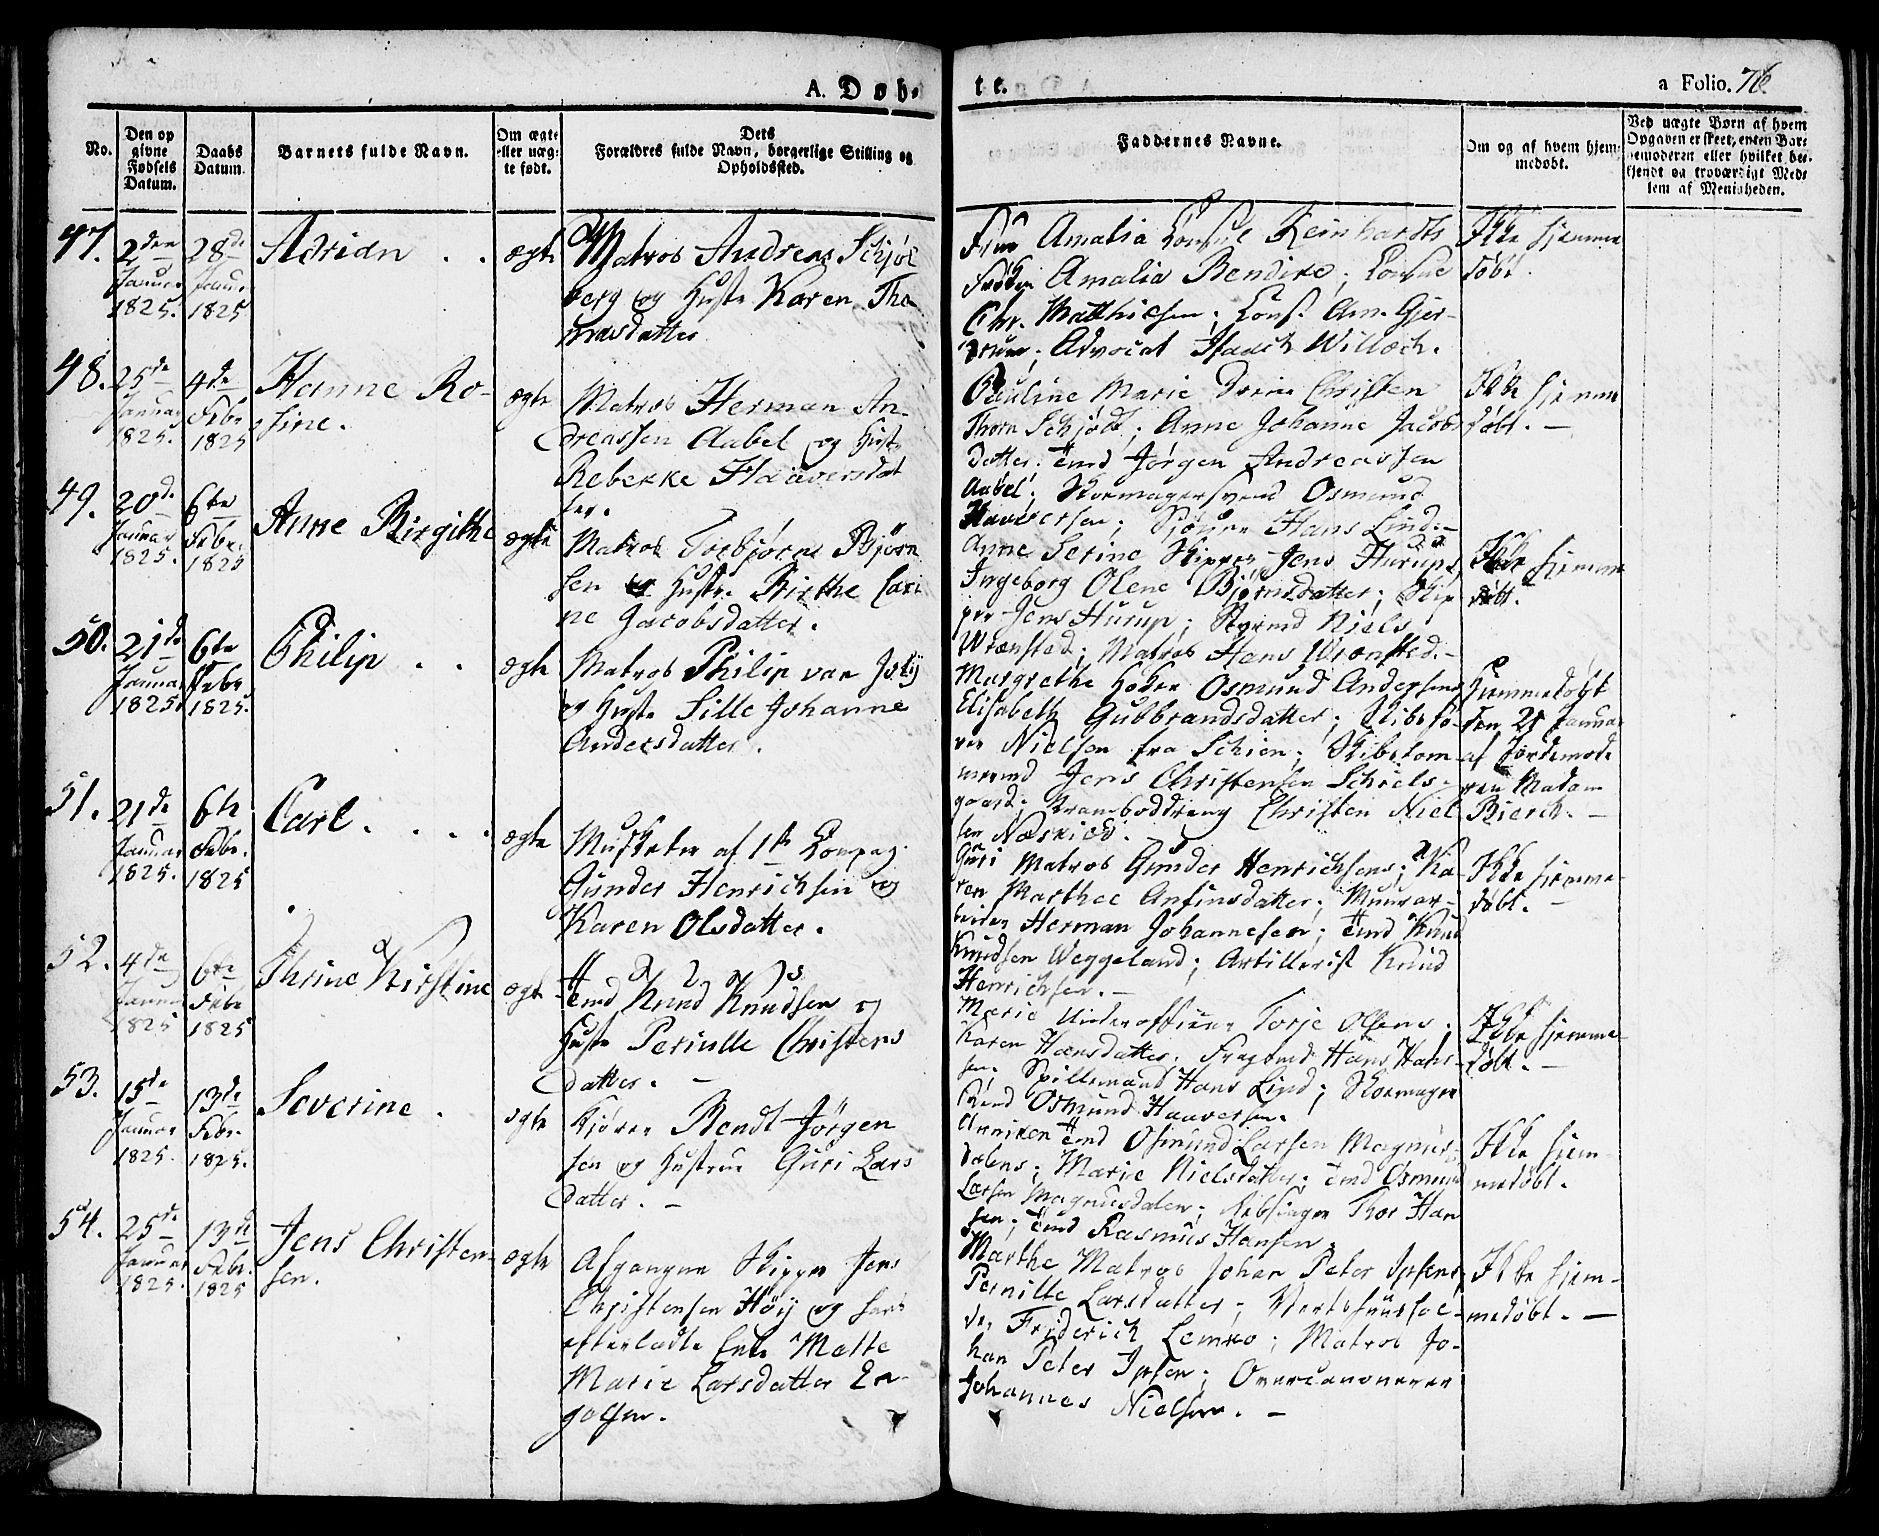 A. Døb-
te.
a Folio. 76
No.
Den op
givne
Fødsels
Datum.
Daabs
Datum.
Barnets fulde Navn.
Om ægte
eller uæg-
te født.
Dets
Forældres fulde Navn, borgerlige Stilling og
Opholdssted.
Faddernes Navne.
Om og af hvem hjem-
medøbt.
Ved uægte Børn af hvem
Opgaven er skeet, enten Bar-
nemoderen eller hvilket be-
kjendt og troværdigt Med-
lem af Menigheden.
47.
2den
Januar
1825.
28de
Janu.
1825
Adrian . .
ægte
Matros Andreas Schjøl
berg og Hustr. Karen Tho
masdatter
Frue Amalia Consul Reinhardts
Frøken Amalia Bendixe; Consul
Chr. Matthiesen; Cons Am. Gjer-
drum; Advocat Isaach Willoch.
Ikke hjemme
døbt.
48.
25de
Januar
1825.
4de
Febr
1825
Hanne Ro-
sine.
ægte
Matros Herman An-
dreassen Aabel og Hustr
Rebekke Haaversdat
ter.
Pauline Marie Christen
Thorn Schjødt; Anne Johanne Jacobs
datter; Tmd Jørgen Andreassen
Aabel; Skomagersvend Osmund
Haaversen; Hans Lind.-
Ikke hjemme
døbt. -
49.
20de
Januar
1825.
6te
Febr.
1825
Anne Birgithe
ægte
Matros Torbjørn Bjørn
sen og Hustr. Birthe Cari
ne Jacobsdatter.
Anne Serine Skipper Jens Hurups,
Ingeborg Olene Bjørnsdatter; Skip
per Jens Hurup; Styrmd Niels
Wrønsted; Matros Hans Wrønsted.-
Ikke hjemme
døbt.
50.
21de
Januar
1825
6te
Febr
1825.
Philip . .
ægte
Matros Philip van
og Hustr Sille Johanne
Andersdatter.
Margrethe Osmund Andersens
Elisabeth Gubbrandsdatter; Skibsfø-
rer Nielsen fra Schien; Skibstøm
mermd Jens Christensen Schiels-
gaard; Kramboddreng Christen Niel
sen Næskied.
Hjemmedøbt
den 21 Januar
af Jordemode
ren Madam
Bierck. -
51.
21de
Januar
1825.
6te
Febr.
1825
Carl . . . .
ægte
Musketer af 1ste Compag.
Gunder Henrichsen og
Karen Olsdatter.
Guri Matros Gunder Henrichsens; Ka-
ren Marthee Anfinsdatter; Muurar-
beider Herman Johannesen; Tmd Knud
Knudsen Weggeland; Artillerist Knud
Henrichsen. -
Ikke hjemme-
døbt. -
52.
4de
Januar
1825
6te
Febr
1825
Thrine Kirstine
ægte
Tmd Knud Knudsen og
Hustr Pernille Christens
datter. -
Marie Underofficer Torje Olsens;
Karen Hansdatter; Hans Hans-
sen; Spillemand Hans Lind; Skomager
svend Osmund Haaversen.
Ikke hjemme-
døbt. -
53.
15de
Januar
1825.
13de
Febr.
1825.
Severine .
ægte
Kjører Bendt Jørgen
sen og Hustrue Guri Lars
datter. -
Anniken Tmd Osmund Larsen Magnus-
dalens; Marie Nielsdatter; Tmd Osmund
Larsen Magnusdalen; Thor Han
sen; Tmd Rasmus Hansen.
Ikke hjem
medøbt.
54.
25de
Januar
1825.
13de
Febr.
1825
Jens Christen-
sen.
ægte
Afgangne Skipper Jens
Christensen Høij og hans
efterladte Enke Malte
Marie Larsdatter En-
golsen.
Marthe Matros Johan Peter Ipsens,
Pernille Larsdatter; Vertshuushol-
der Friderich Lemko; Matros Jo-
han Peter Ipsen; Overcanoneer
Johannes Nielsen. -
Ikke hjem-
medøbt. -